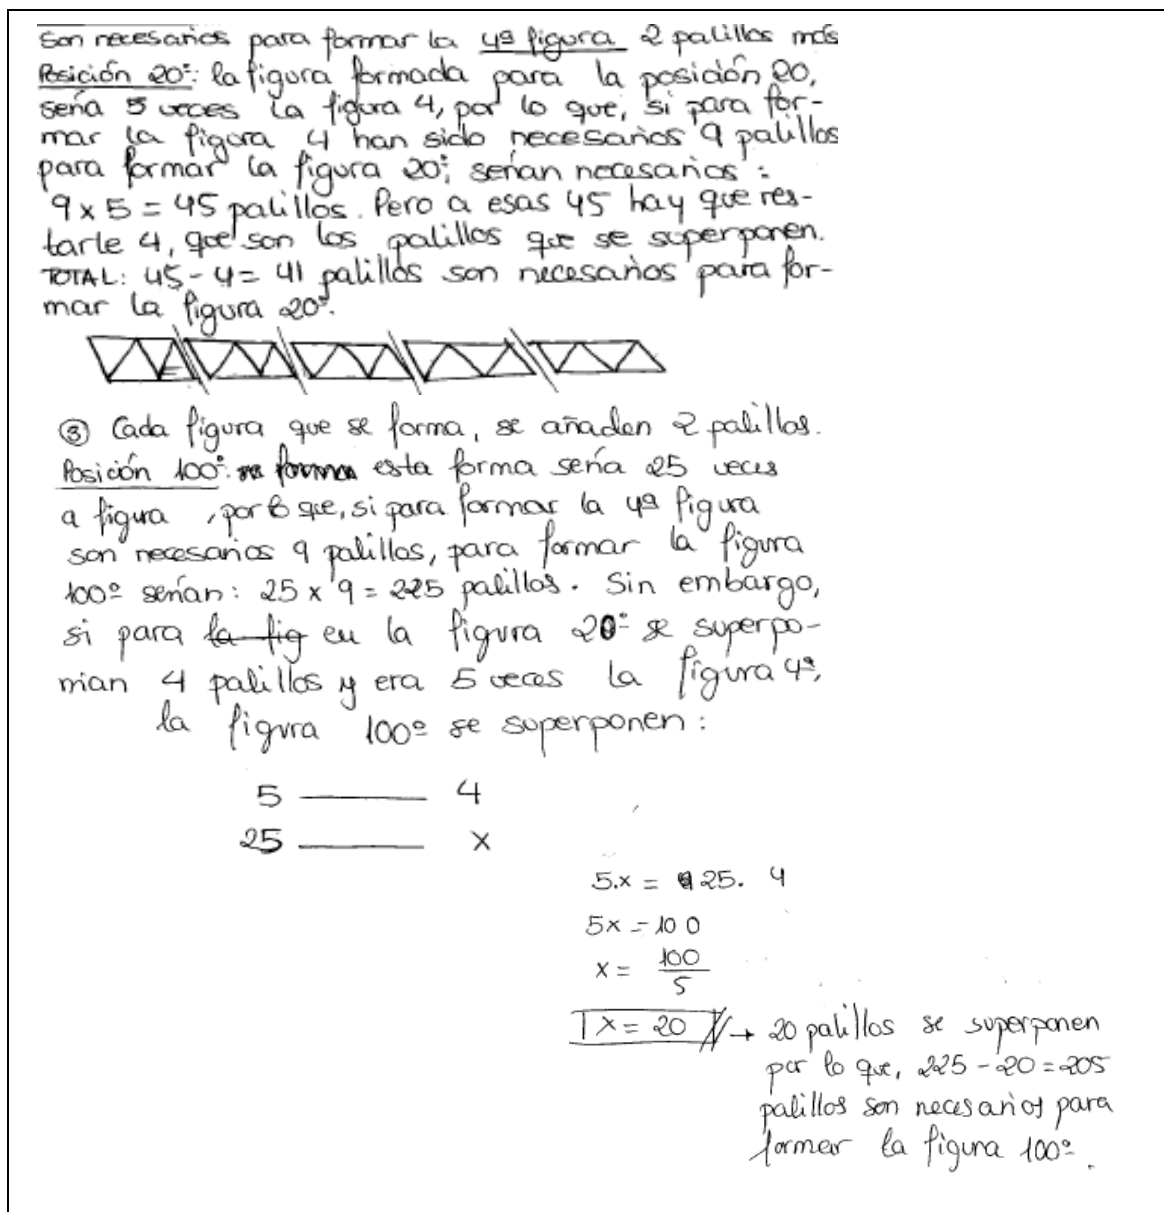 son necesarios para formar la 4ª figura 2 palillos más
Posición 20ª: la figura formada para la posición 20,
sería 5 veces la figura 4, por lo que, si para for-
mar la figura 4 han sido necesarios 9 palillos
para formar la figura 20ª; serían necesarios:
9 x 5 = 45 palillos. Pero a esas 45 hay que res-
tarle 4, que son los palillos que se superponen.
TOTAL: 45 - 4 = 41 palillos son necesarios para for-
mar la figura 20ª.
③ Cada figura que se forma, se añaden 2 palillos.
Posición 100ª: forma esta forma sería 25 veces
a figura , por lo que, si para formar la 4ª figura
son necesarios 9 palillos, para formar la figura
100º serían: 25 x 9 = 225 palillos. Sin embargo,
si para la fig en la figura 20ª se superpo-
nian 4 palillos y era 5 veces la figura 4ª,
la figura 100º se superponen:
5 —— 4
25 —— x
5.x = 25. 4
5x = 100
x = 100/5
x = 20 → 20 palillos se superponen
por lo que, 225 - 20 = 205
palillos son necesarios para
formar la figura 100º.